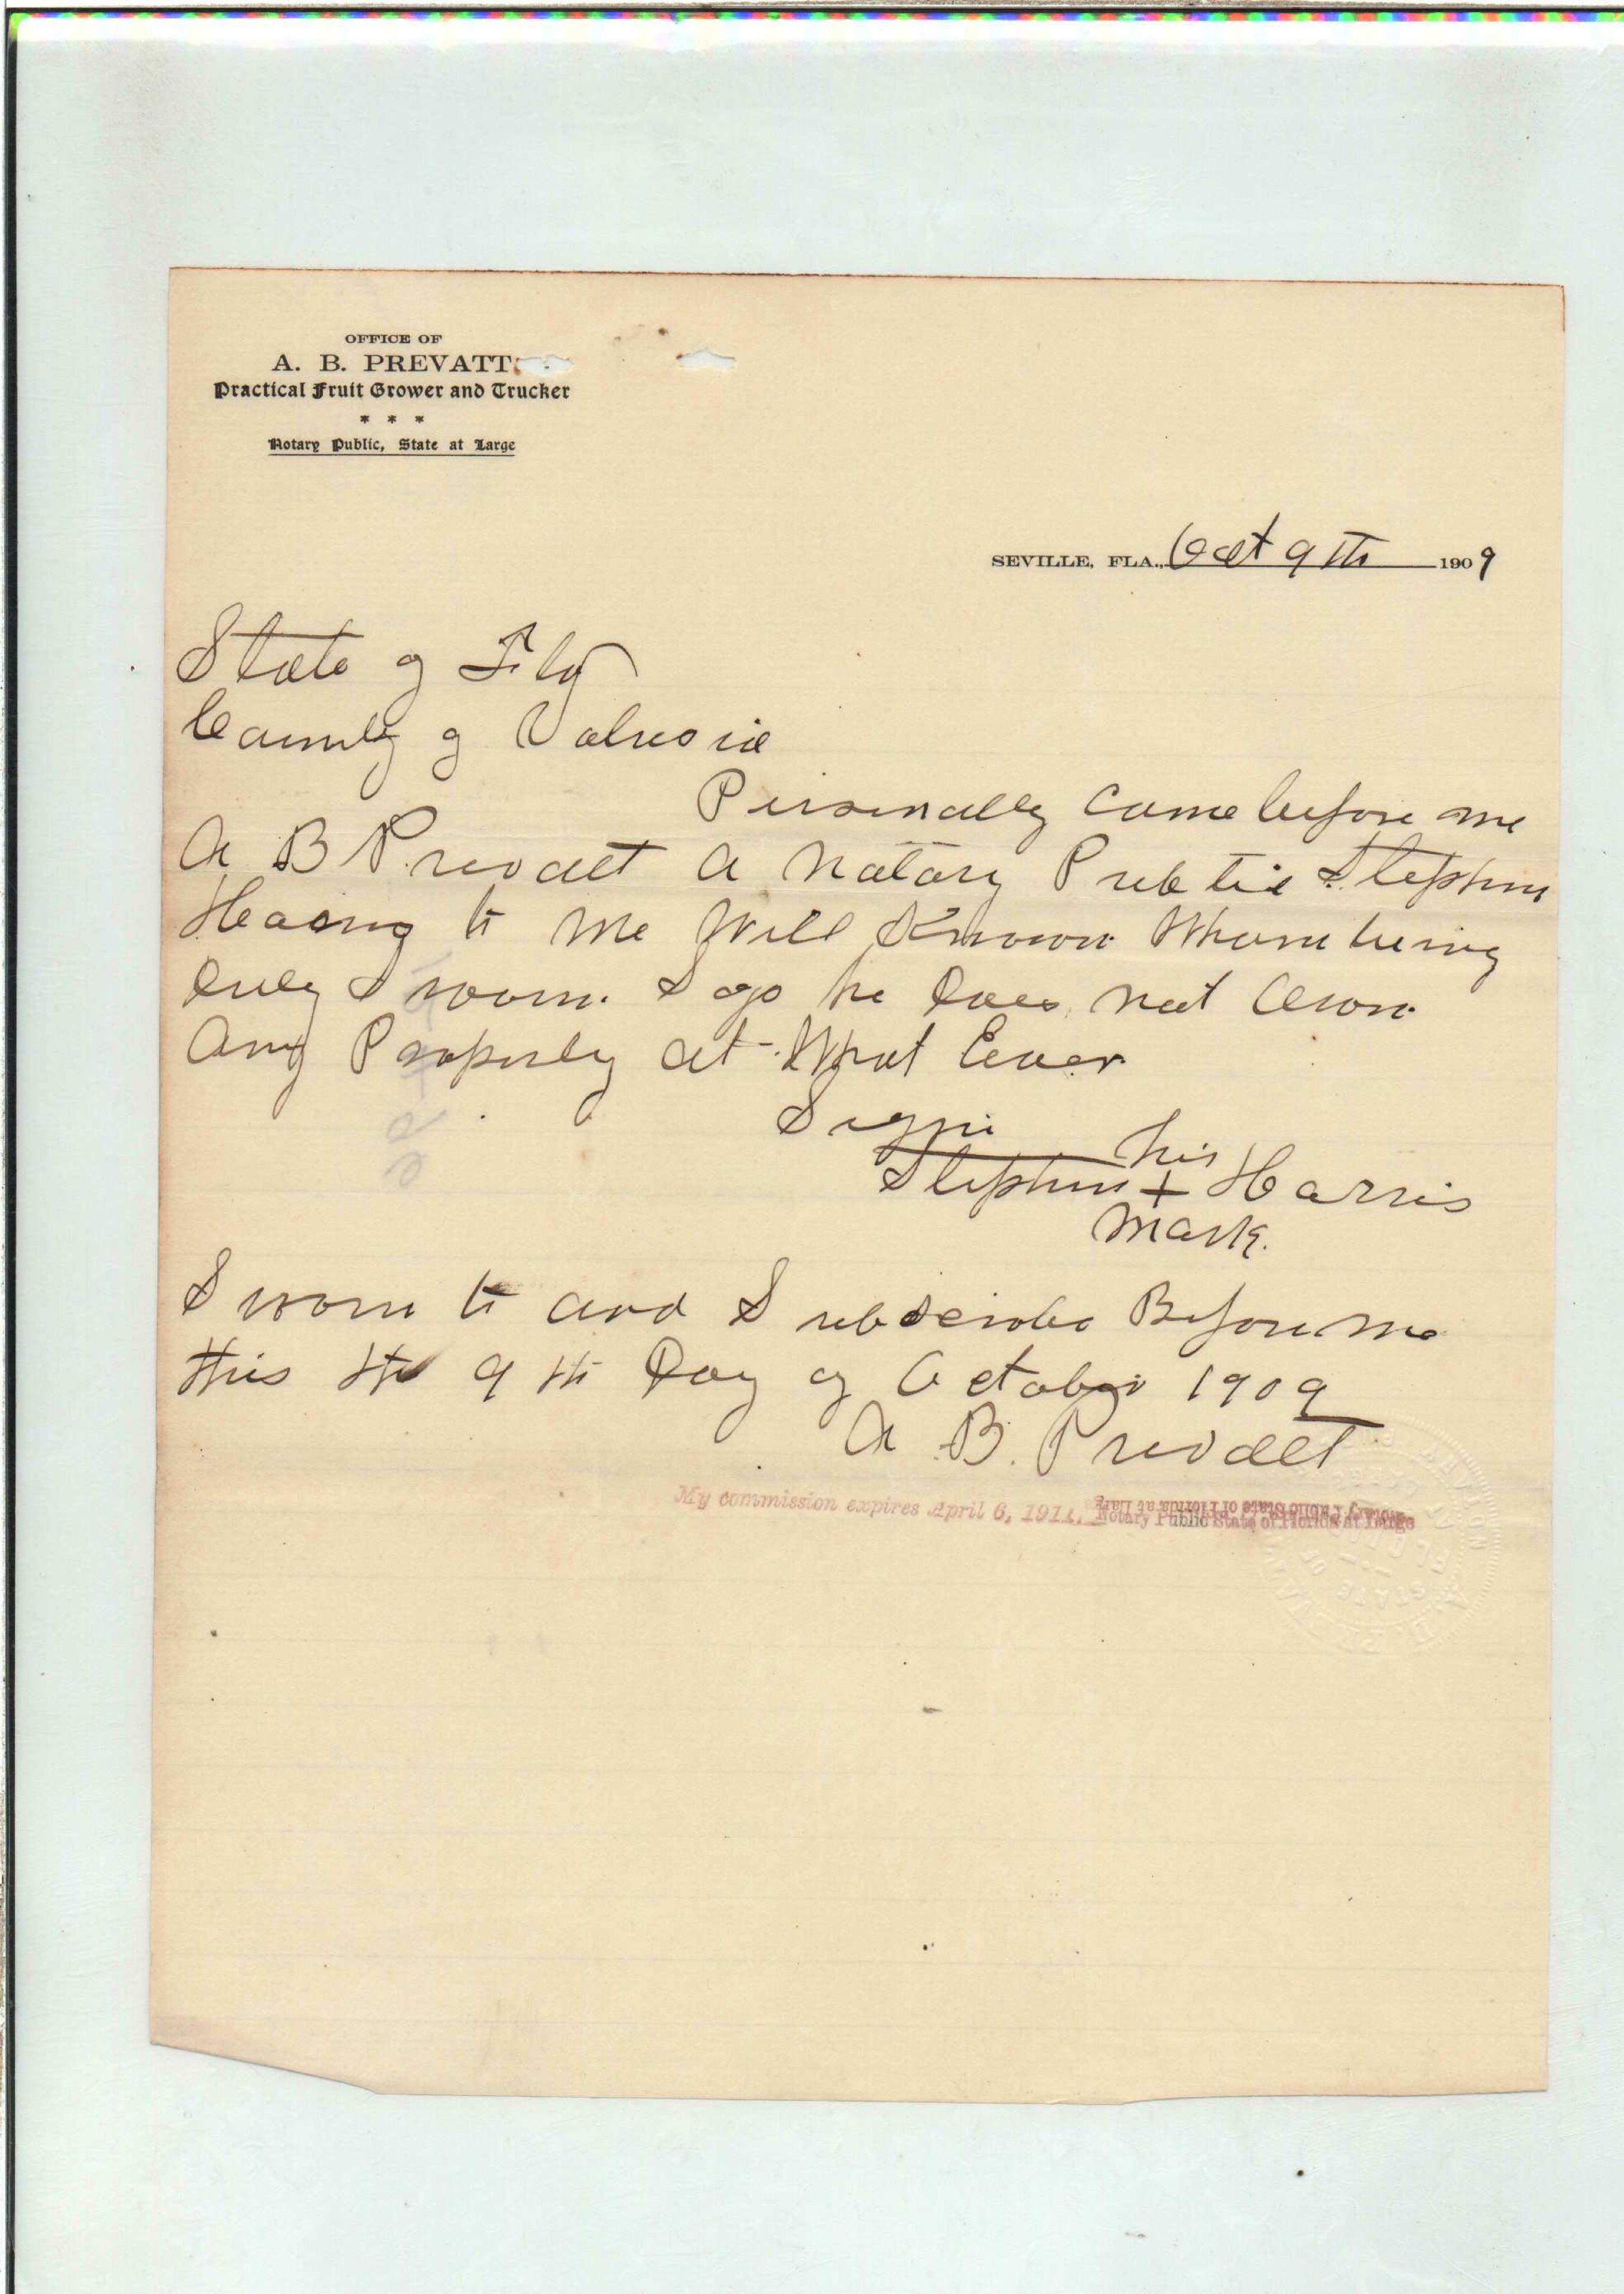 OFFICE OF
A. B. PREVATT
Practical Fruit Grower and Trucker
* * *
Notary Public, State at Large
SEVILLE, FLA., Oct 9th 1909
State of Fla
County of Volusia
Personally Came before me
A B Prevatt a Notary Public Stephen
to me Well Known Whom being
Duly Sworn. Says he Does not Own
Any Property at What Ever
Signe
his
Stephen + Harris
mark.
Sworn to and Subscribe Before me
this the 9th Day of October 1909
A B. Prevatt
My commission expires April 6, 1911. Notary Public State of Florida at Large